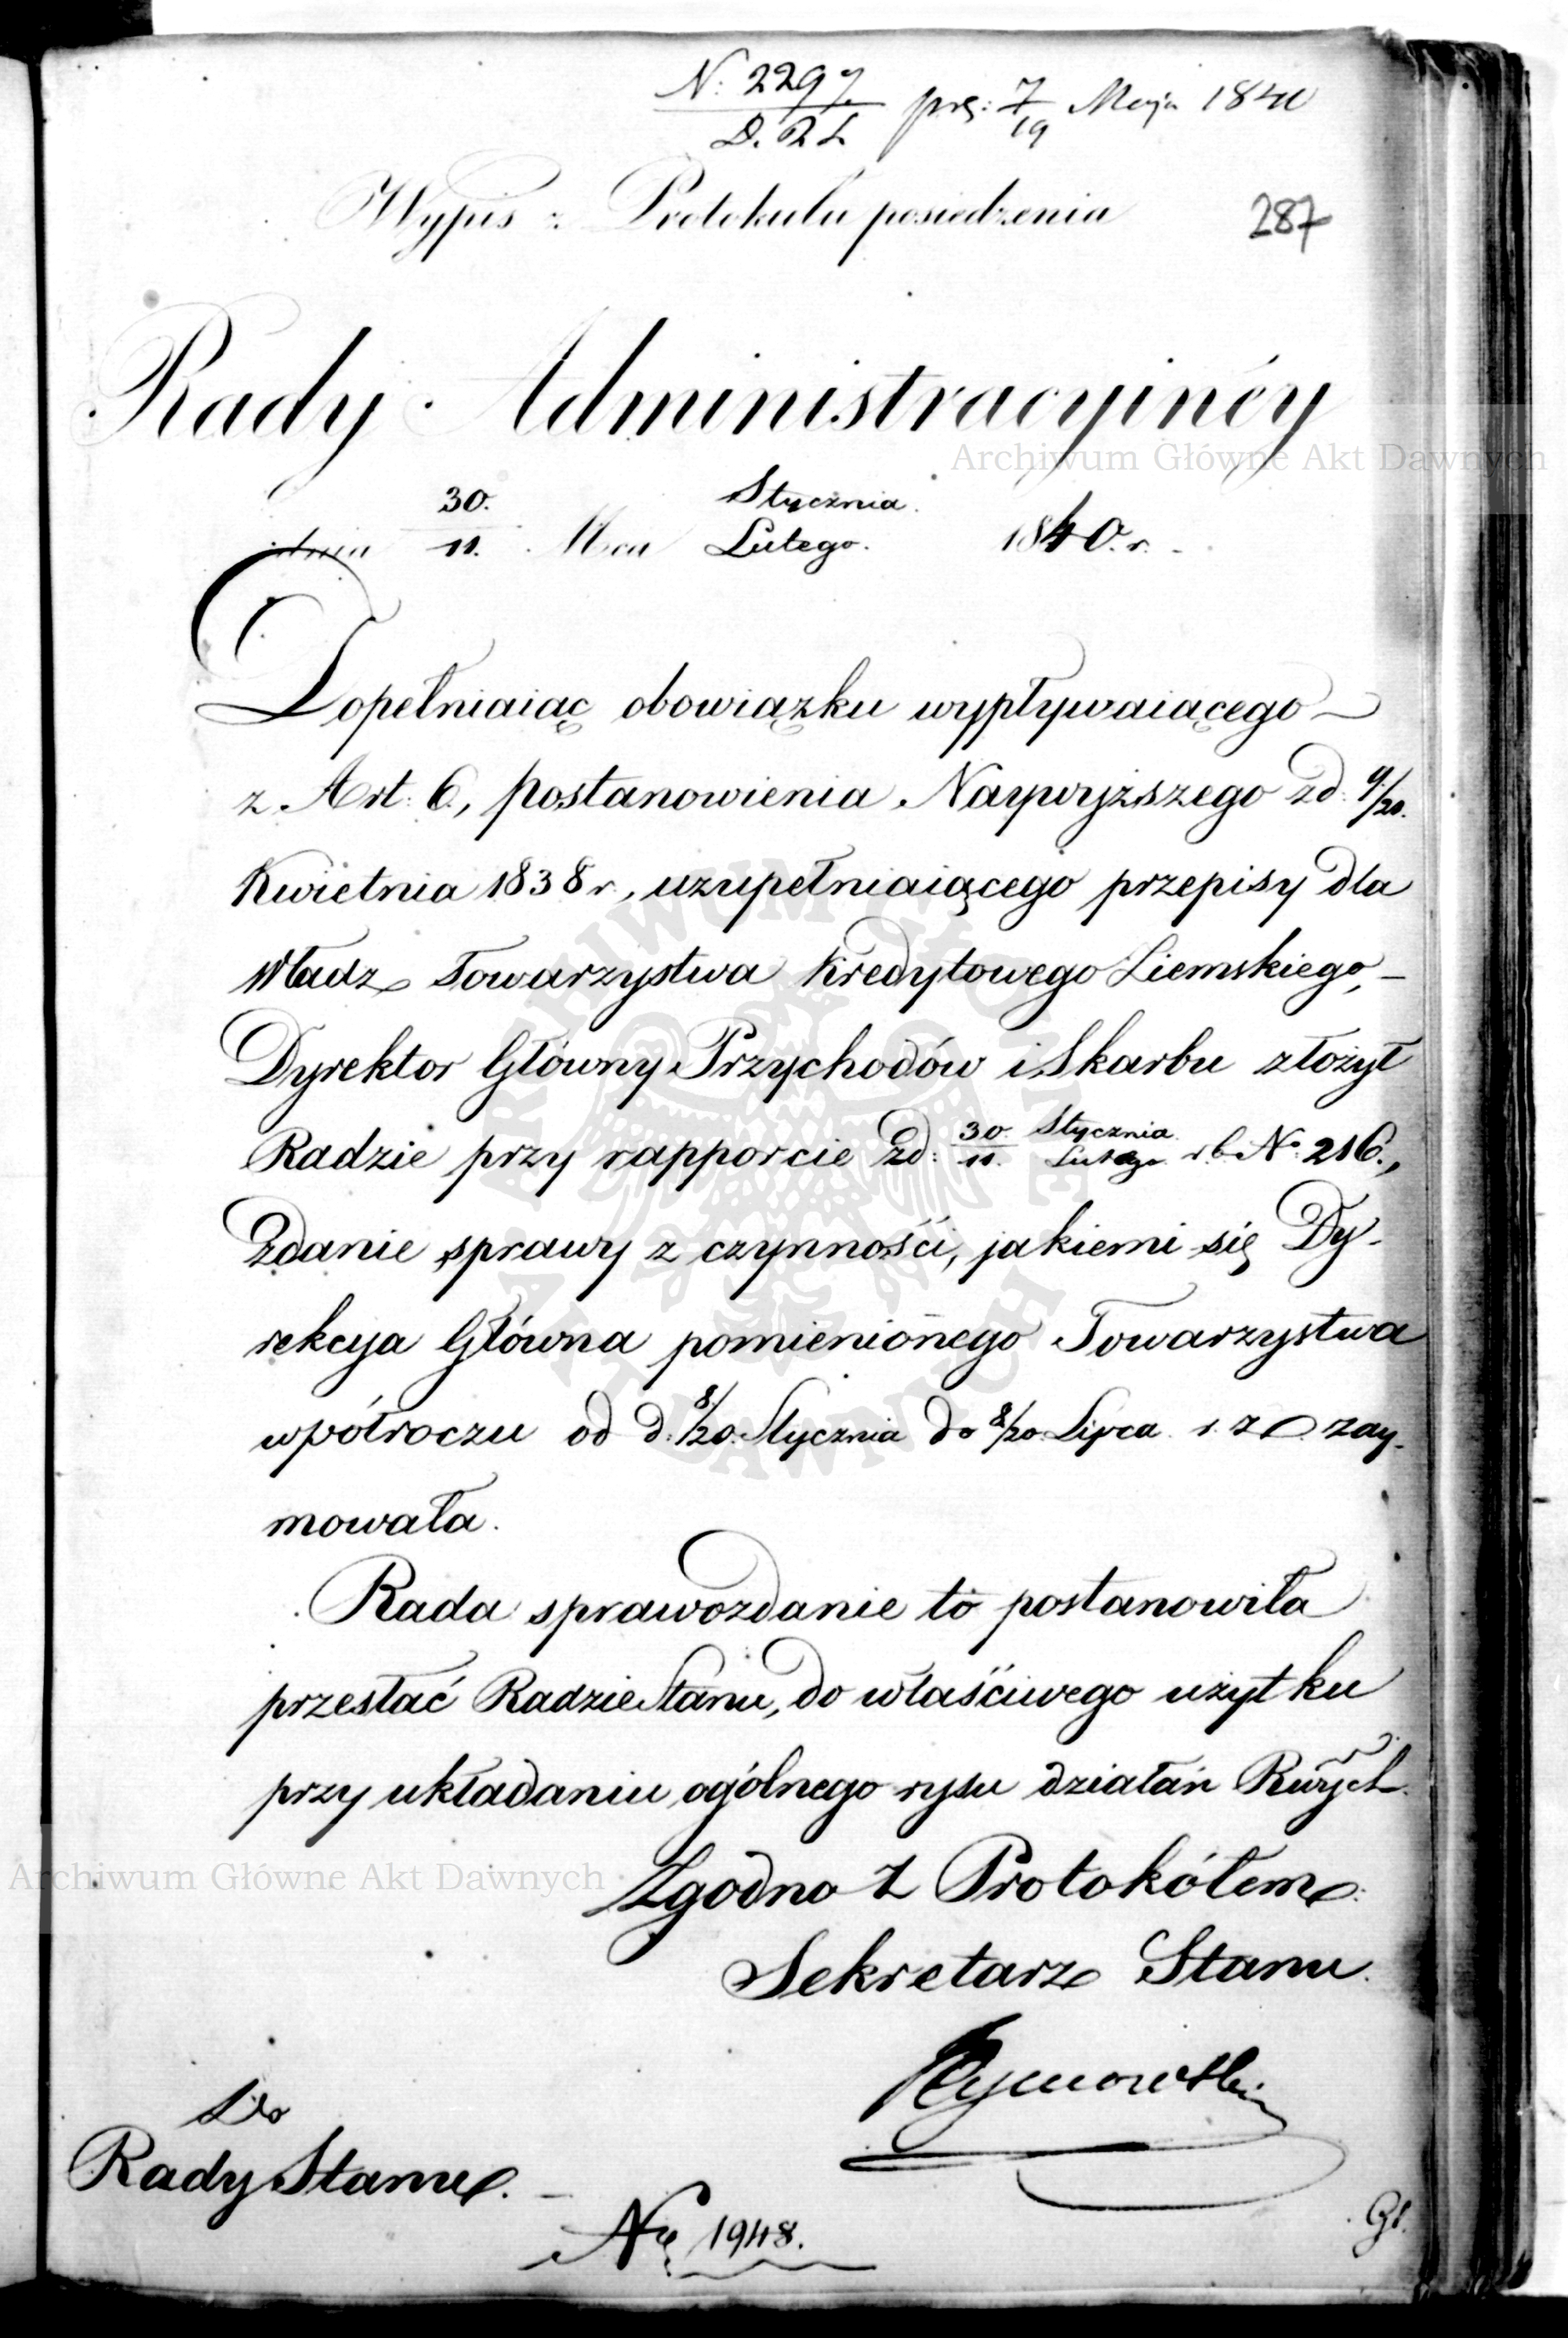 N: 2297 prz: 7/19 Maja 1840
D. R. S.
Wypis z Protokułu posiedzenia
287
Rady Administracyinéy
dnia 30./11. Mca Stycznia./Lutego. 1840. r. -
Dopełniaiąc obowiązku wypływaiącego
z Art: 6, postanowienia Naywyższego zd: 9/20.
Kwietnia 1838 r., uzupełniaiącego przepisy dla
Władz Towarzystwa Kredytowego Ziemskiego, -
Dyrektor Główny Przychodów i Skarbu złożył
Radzie przy rapporcie zd: 30./11. Stycznia./Lutego r. b. No 216.,
Zdanie sprawy z czynności, jakiemi się Dy-
rekcya Główna pomienionego Towarzystwa
w półroczu od d: 8/20. Stycznia do 8/20 Lipca r. z. zay-
mowała.
Rada sprawozdanie to postanowiła
przesłać Radzie Stanu, do właściwego użytku
przy układaniu ogólnego rysu działań Rwych.
Zgodno z Protokółem:
Sekretarz Stanu.
Tymowski
Do
Rady Stanu. -
No 1948.
Archiwum Główne Akt Dawnych
Archiwum Główne Akt Dawnych
ARCHIWUM GŁÓWNE AKT DAWNYCH